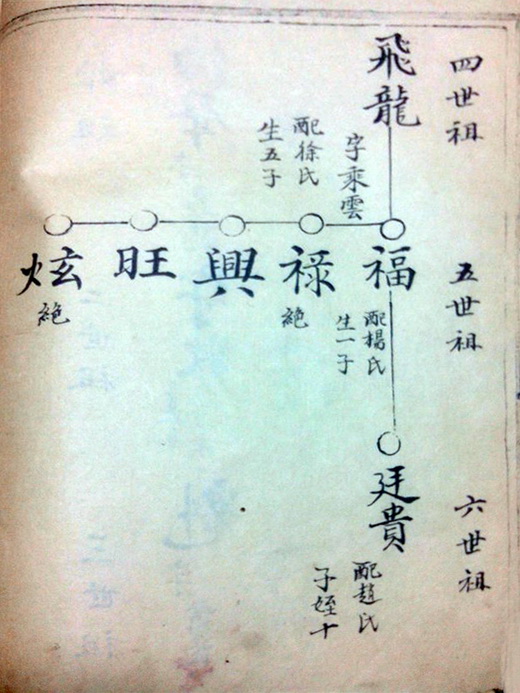 四世祖
飛龍
字乘雲
配徐氏
生五子
五世祖
福
配楊氏
生一子
祿
絕
興
旺
炫
絕
六世祖
廷貴
配趙氏
子姪十